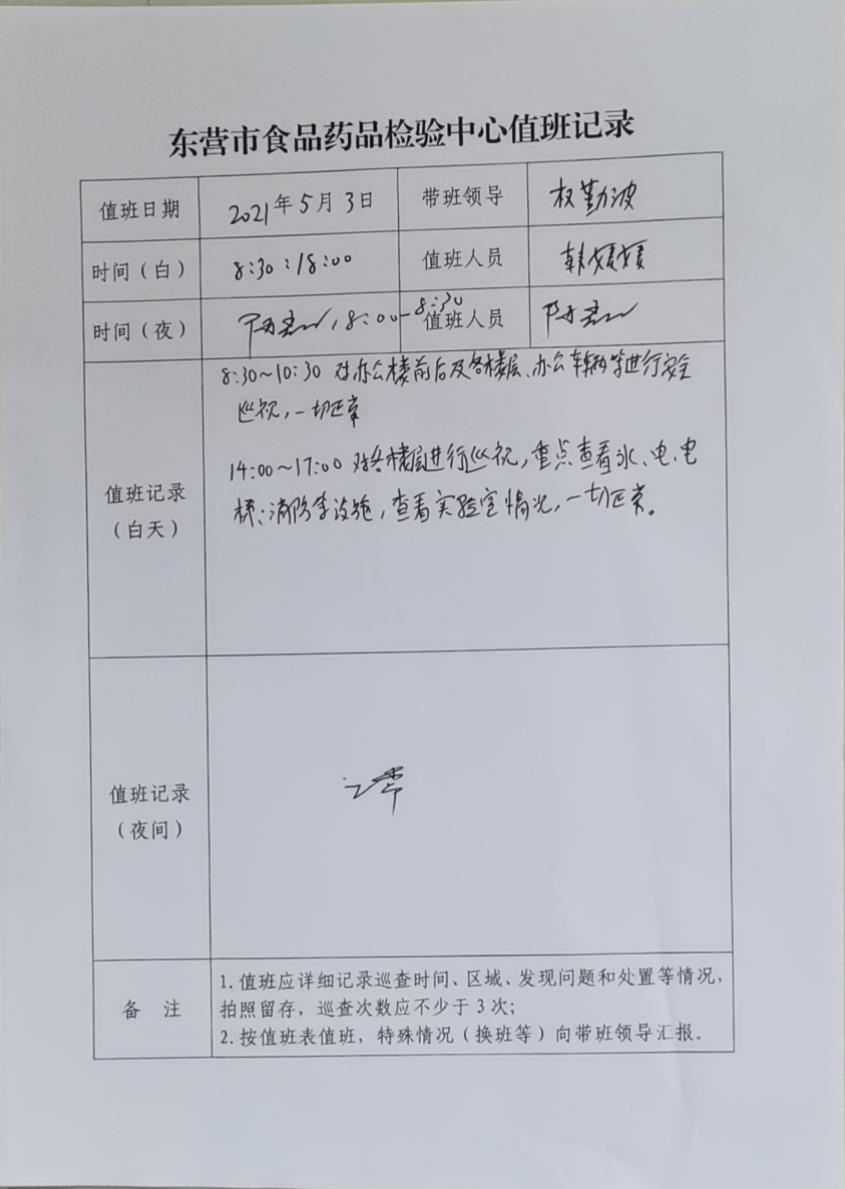 东营市食品药品检验中心值班记录
值班日期 2021年5月3日 带班领导 权勤波
时间（白） 8:30:18:00 值班人员 韩媛媛
时间（夜） 18:00-8:30 值班人员
8:30~10:30 对办公楼前后及各楼层、办公车辆等进行安全
巡视，一切正常
14:00~17:00 对各楼层进行巡视，重点查看水、电、电
梯、消防等设施，查看实验室情况，一切正常。
值班记录
（白天）
值班记录
（夜间）
备 注
1.值班应详细记录巡查时间、区域、发现问题和处置等情况，
拍照留存，巡查次数应不少于3次；
2.按值班表值班，特殊情况（换班等）向带班领导汇报.